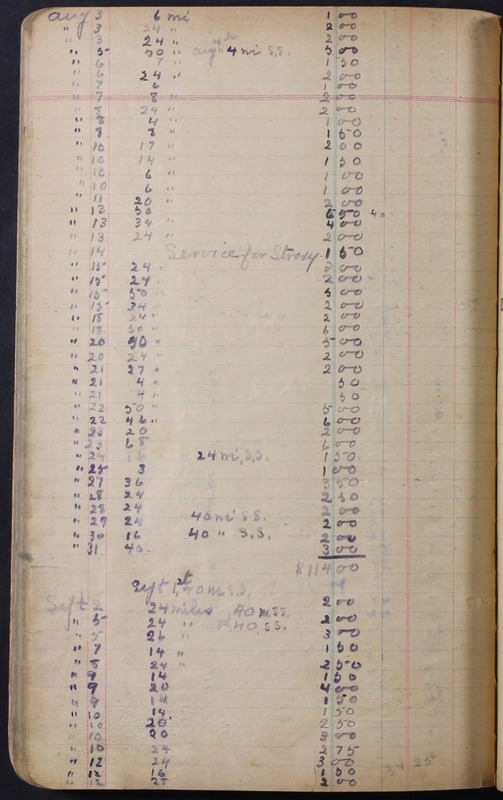 Aug 3 6 mi 1 00
" 3 24 " 2 00
" 3 24 " 2 00
" 5 50 " Aug 4th 4 mi S.S. 5 00
" 6 7 " 1 50
" 6 24 " 2 00
" 7 6 " 1 00
" 7 8 " 2 00
" 8 24 " 2 00
" 8 4 " 1 00
" 8 8 " 1 50
" 10 17 " 2 00
" 10 14 " 1 50
" 10 6 " 1 00
" 10 6 " 1 00
" 11 20 " 2 00
" 13 50 "
" 13 34 " 4 00
" 13 24 " 2 00
" 14 Service for Strosy 1 50
" 15 24 " 2 00
" 15 24 " 2 00
" 15 50 " 5 00
" 15 34 "
" 18 24 " 2 00
" 18 50 "
" 20 5 00
" 20 24 " 2 00
" 21 27 " 2 00
" 21 4 " 50
" 21 4 " 50
" 22 50 " 5 00
" 22 46 " 6 00
" 23 20 2 00
" 23 68 6 00
" 24 24 mi, S.S. 1 50
" 25 3 1 00
" 27 36 3 50
" 28 24 2 50
" 28 24 2 00
" 29 24 40 mi S.S. 2 00
" 30 16 40 " S.S. 2 00
" 31 40 3 00
$114 00
Sept 1st, 40 m S.S.
Sept 2 24 miles, 40 m S.S. 2 00
" 5 24 " 40, S.S. 2 00
" 5 26 " 3 00
" 7 14 " 1 50
" 8 24 " 2 00
" 9 14 1 50
" 9 20 4 00
" 9 14 1 50
" 10 14 1 50
" 10 20 2 50
" 10
" 10 24 2 75
" 12 24 3 00
" 12 16 1 50
" 12 28 2 00